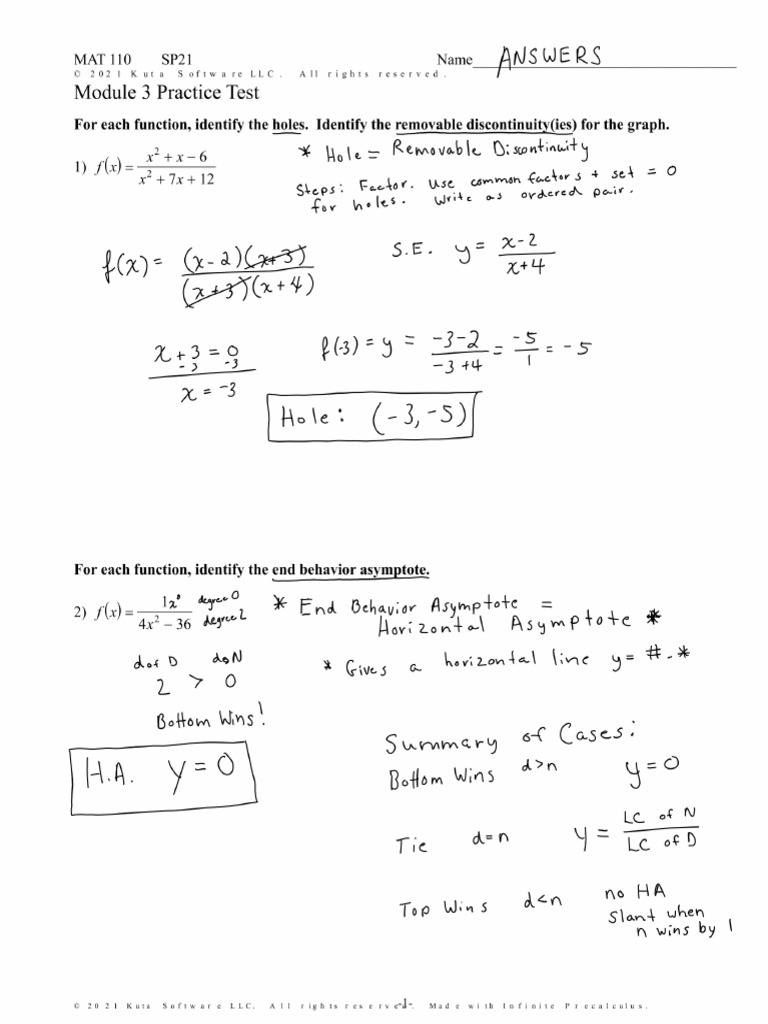 MAT 110 SP21 Name ANSWERS
© 2021 Kuta Software LLC. All rights reserved.
Module 3 Practice Test
For each function, identify the holes. Identify the removable discontinuity(ies) for the graph.
1) f(x) = (x² + x − 6)/(x² + 7x + 12)
* Hole = Removable Discontinuity
Steps: Factor. Use common factors + set = 0
for holes. Write as ordered pair.
f(x) = (x-2)(x+3)/(x+3)(x+4)
S.E. y = (x-2)/(x+4)
x + 3 = 0
-3 -3
x = -3
f(-3) = y = (-3-2)/(-3+4) = -5/1 = -5
Hole: (-3, -5)
For each function, identify the end behavior asymptote.
2) f(x) = 1x⁰/(4x² − 36) degree 0 degree 2
* End Behavior Asymptote =
Horizontal Asymptote *
* Gives a horizontal line y= #. *
d of D d of N
2 > 0
Bottom Wins!
H.A. y = 0
Summary of Cases:
Bottom Wins d>n y=0
Tie d=n y = LC of N/LC of D
Top Wins d<n no HA
Slant when
n wins by 1
-1-
© 2021 Kuta Software LLC. All rights reserved. Made with Infinite Precalculus.